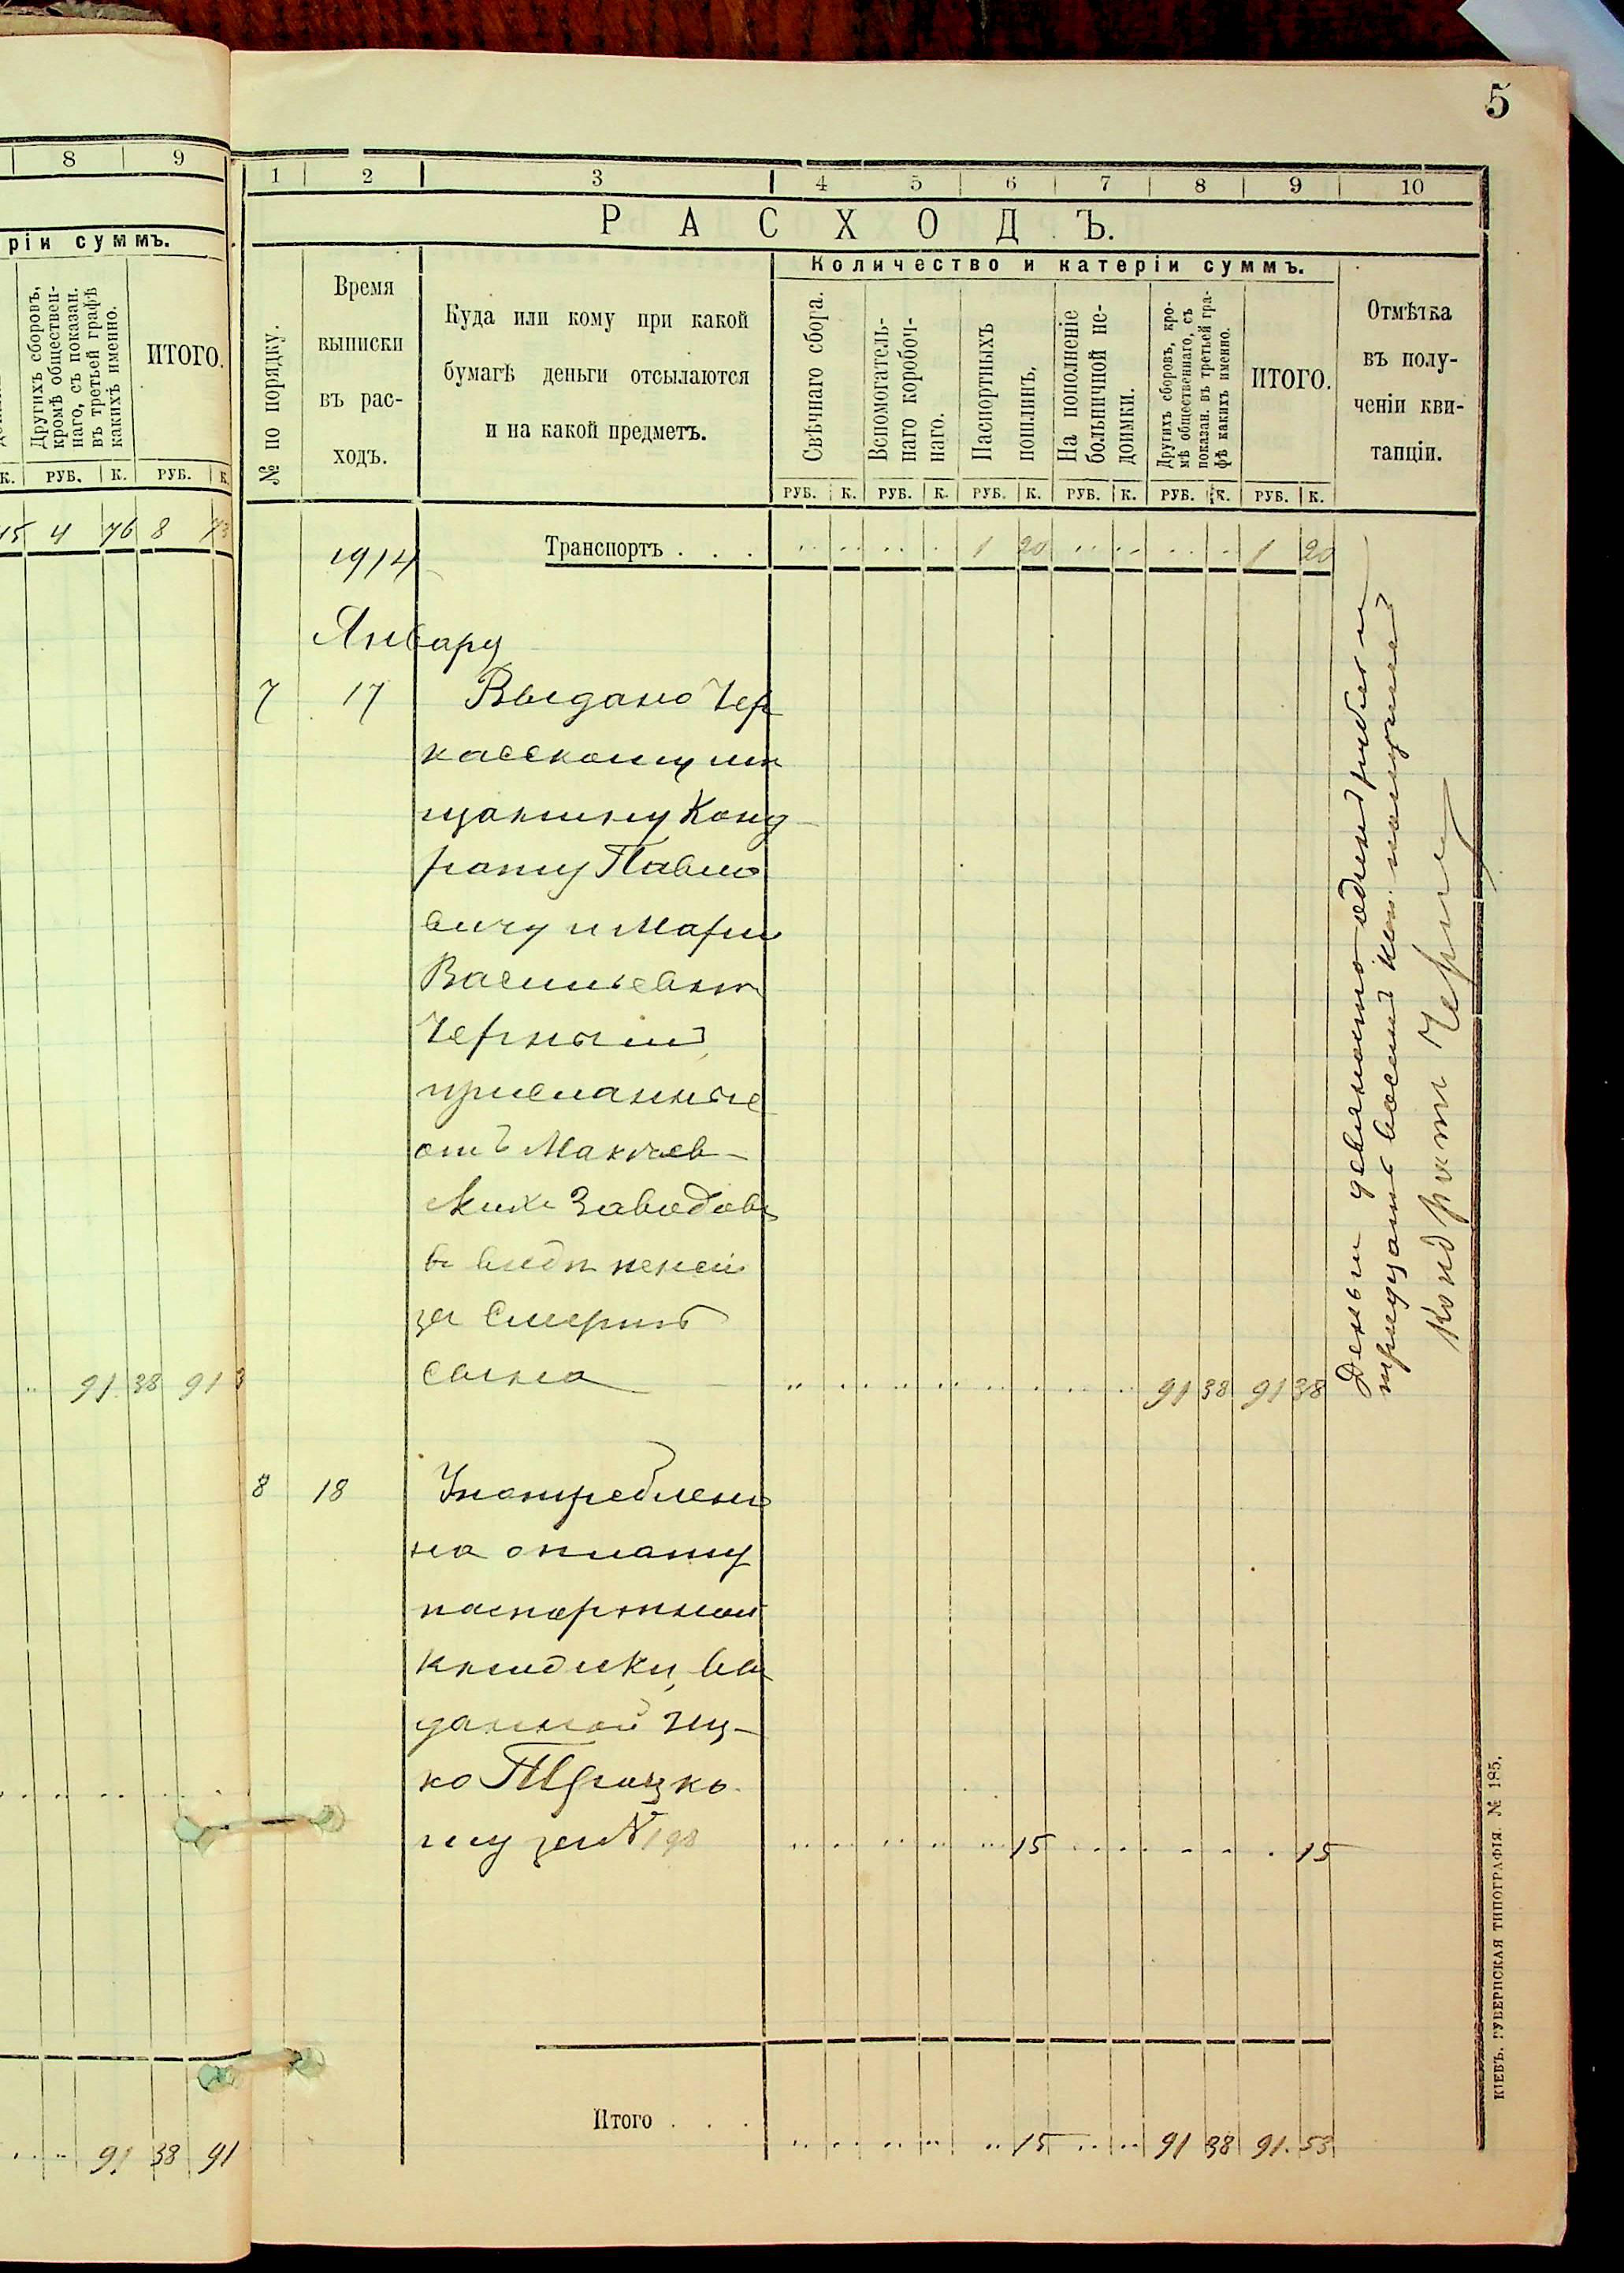 5
8 9
ріи суммъ.
Другихъ сборовъ,
кромѣ обществен-
наго, съ показан.
въ третьей графѣ
какихъ именно.
ИТОГО.
К. РУБ. К. РУБ. К.
15 4 76 8 73
91 38 91 3
91 38 91
1 2 3 4 5 6 7 8 9 10
РАСХОДЪ.
№ по порядку.
Время
выписки
въ рас-
ходъ.
Куда или кому при какой
бумагѣ деньги отсылаются
и на какой предметъ.
Количество и катеріи суммъ.
Свѣчнаго сбора.
Вспомогатель-
наго коробоч-
наго.
Паспортныхъ
пошлинъ,
На пополненіе
больничной не-
доимки.
Другихъ сборовъ, кро-
мѣ общественнаго, съ
показан. въ третьей гра-
фѣ какихъ именно.
ИТОГО.
Отмѣтка
въ полу-
ченіи кви-
танціи.
РУБ. К. РУБ. К. РУБ. К. РУБ. К. РУБ. К. РУБ. К.
Транспортъ . . . 1 20 1 20
1914
Январy
7 17 Выдано Чер
касскому мѣ
щанину Конд
рату Павло
вичу и Маріи
Васильевнѣ
Чернымъ,
присланные
отъ Макѣев
скихъ Заводовъ
въ видѣ пенсіи
за смерть
сына 91 38 91 38
Деньги девяносто одинъ рубль и
тридцать восемь коп. получилъ
Кондратъ Черный
8 18 Употреблено
на оплату
паспортной
книжки, вы
данной
му за № 198 15 15
Итого . . . 15 91 38 91. 53
КІЕВЪ. ГУБЕРНСКАЯ ТИПОГРАФІЯ. № 185.